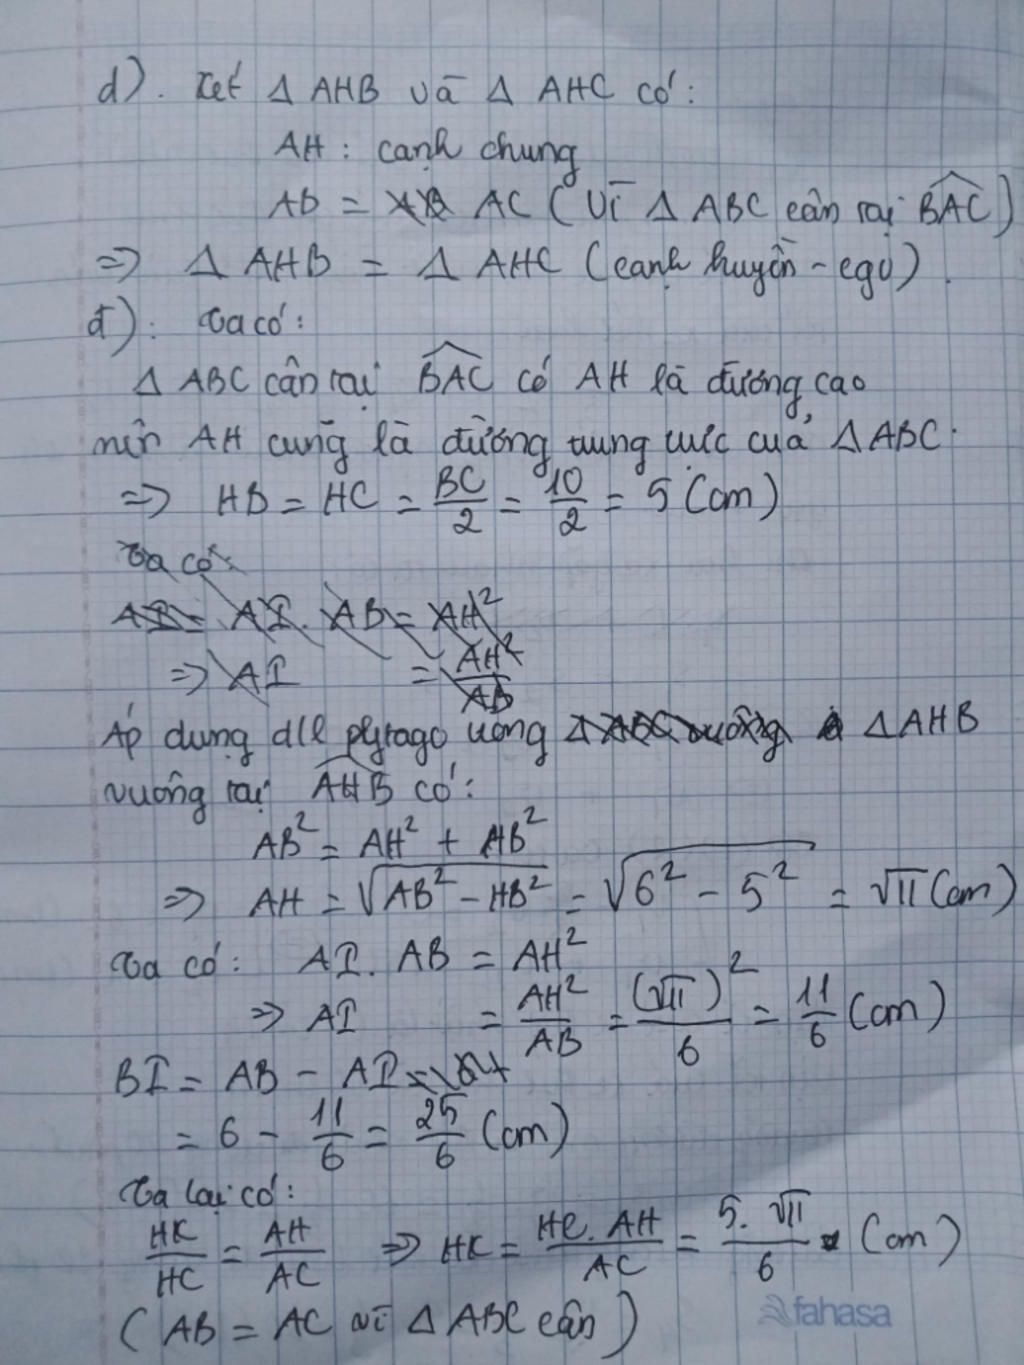 d). Xét Δ AHB và Δ AHC có:
AH : cạnh chung
AB = AC (Vì Δ ABC cân tại \widehat{BAC})
=> Δ AHB = Δ AHC (cạnh huyền - cgv).
đ): Ta có:
Δ ABC cân tại \widehat{BAC} có AH là đường cao
nên AH cũng là đường trung trực của Δ ABC.
=> HB = HC = \frac{BC}{2} = \frac{10}{2} = 5 (cm)
Ta có:
AI = AI. AB = AH²
=> AI = \frac{AH²}{AB}
Áp dụng đll pytago vuông Δ ABC vuông Δ AHB
vuông tại \widehat{AHB} có:
AB² = AH² + HB²
=> AH = \sqrt{AB² - HB²} = \sqrt{6² - 5²} = √11 (cm)
Ta có: AI. AB = AH²
=> AI = \frac{AH²}{AB} = \frac{(√11)²}{6} = \frac{11}{6} (cm)
BI = AB - AI =
= 6 - \frac{11}{6} = \frac{25}{6} (cm)
Ta lại có:
\frac{HK}{HC} = \frac{AH}{AC} => HK = \frac{HC. AH}{AC} = \frac{5. √11}{6} (cm)
(AB = AC vì Δ ABC cân)
fahasa